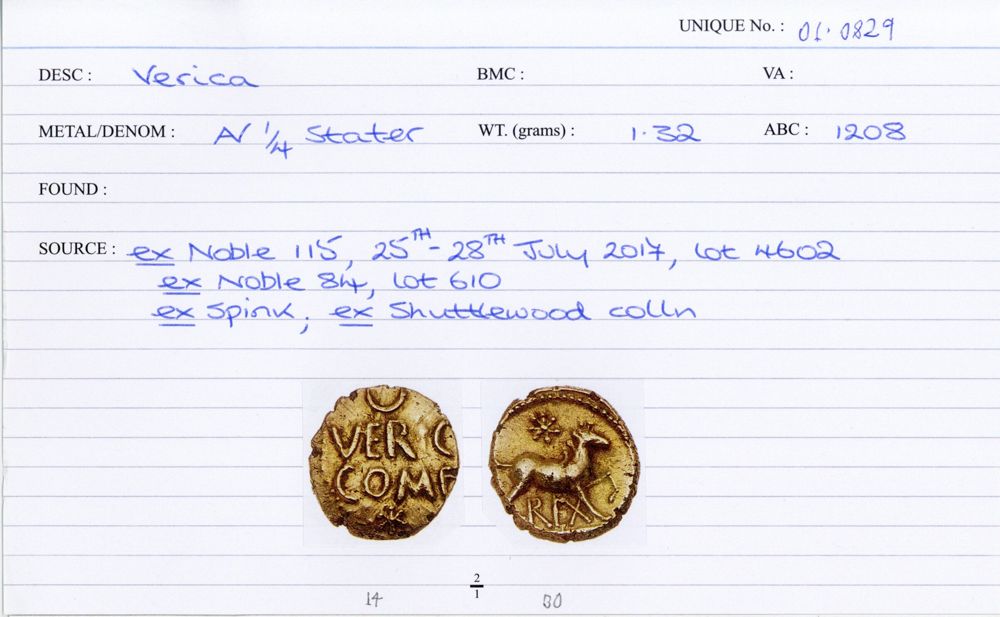 UNIQUE No. : 01.0829
DESC : Verica BMC : VA :
METAL/DENOM : AV 1/4 Stater WT. (grams) : 1.32 ABC : 1208
FOUND :
SOURCE : ex Noble 115, 25TH - 28TH July 2017, lot 4602
ex Noble 84, lot 610
ex Spink, ex Shuttlewood colln
VERIC
COMF
REX
2/1
14 80